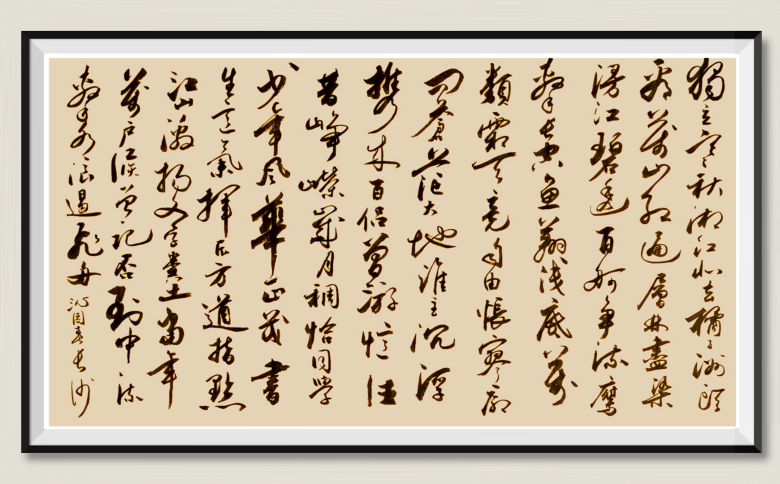 獨立寒秋湘江北去橘子洲頭
看萬山紅遍層林盡染
漫江碧透百舸爭流鷹
擊長空魚翔淺底萬
類霜天竞自由悵寥廓
問蒼茫大地誰主沉浮
攜來百侣曾游憶往
昔崢嶸歲月稠恰同學
少年風華正茂書
生意氣揮斥方遒指點
江山激揚文字糞土當年
萬户侯曾記否到中流
擊水浪遏飛舟
沁園春長沙